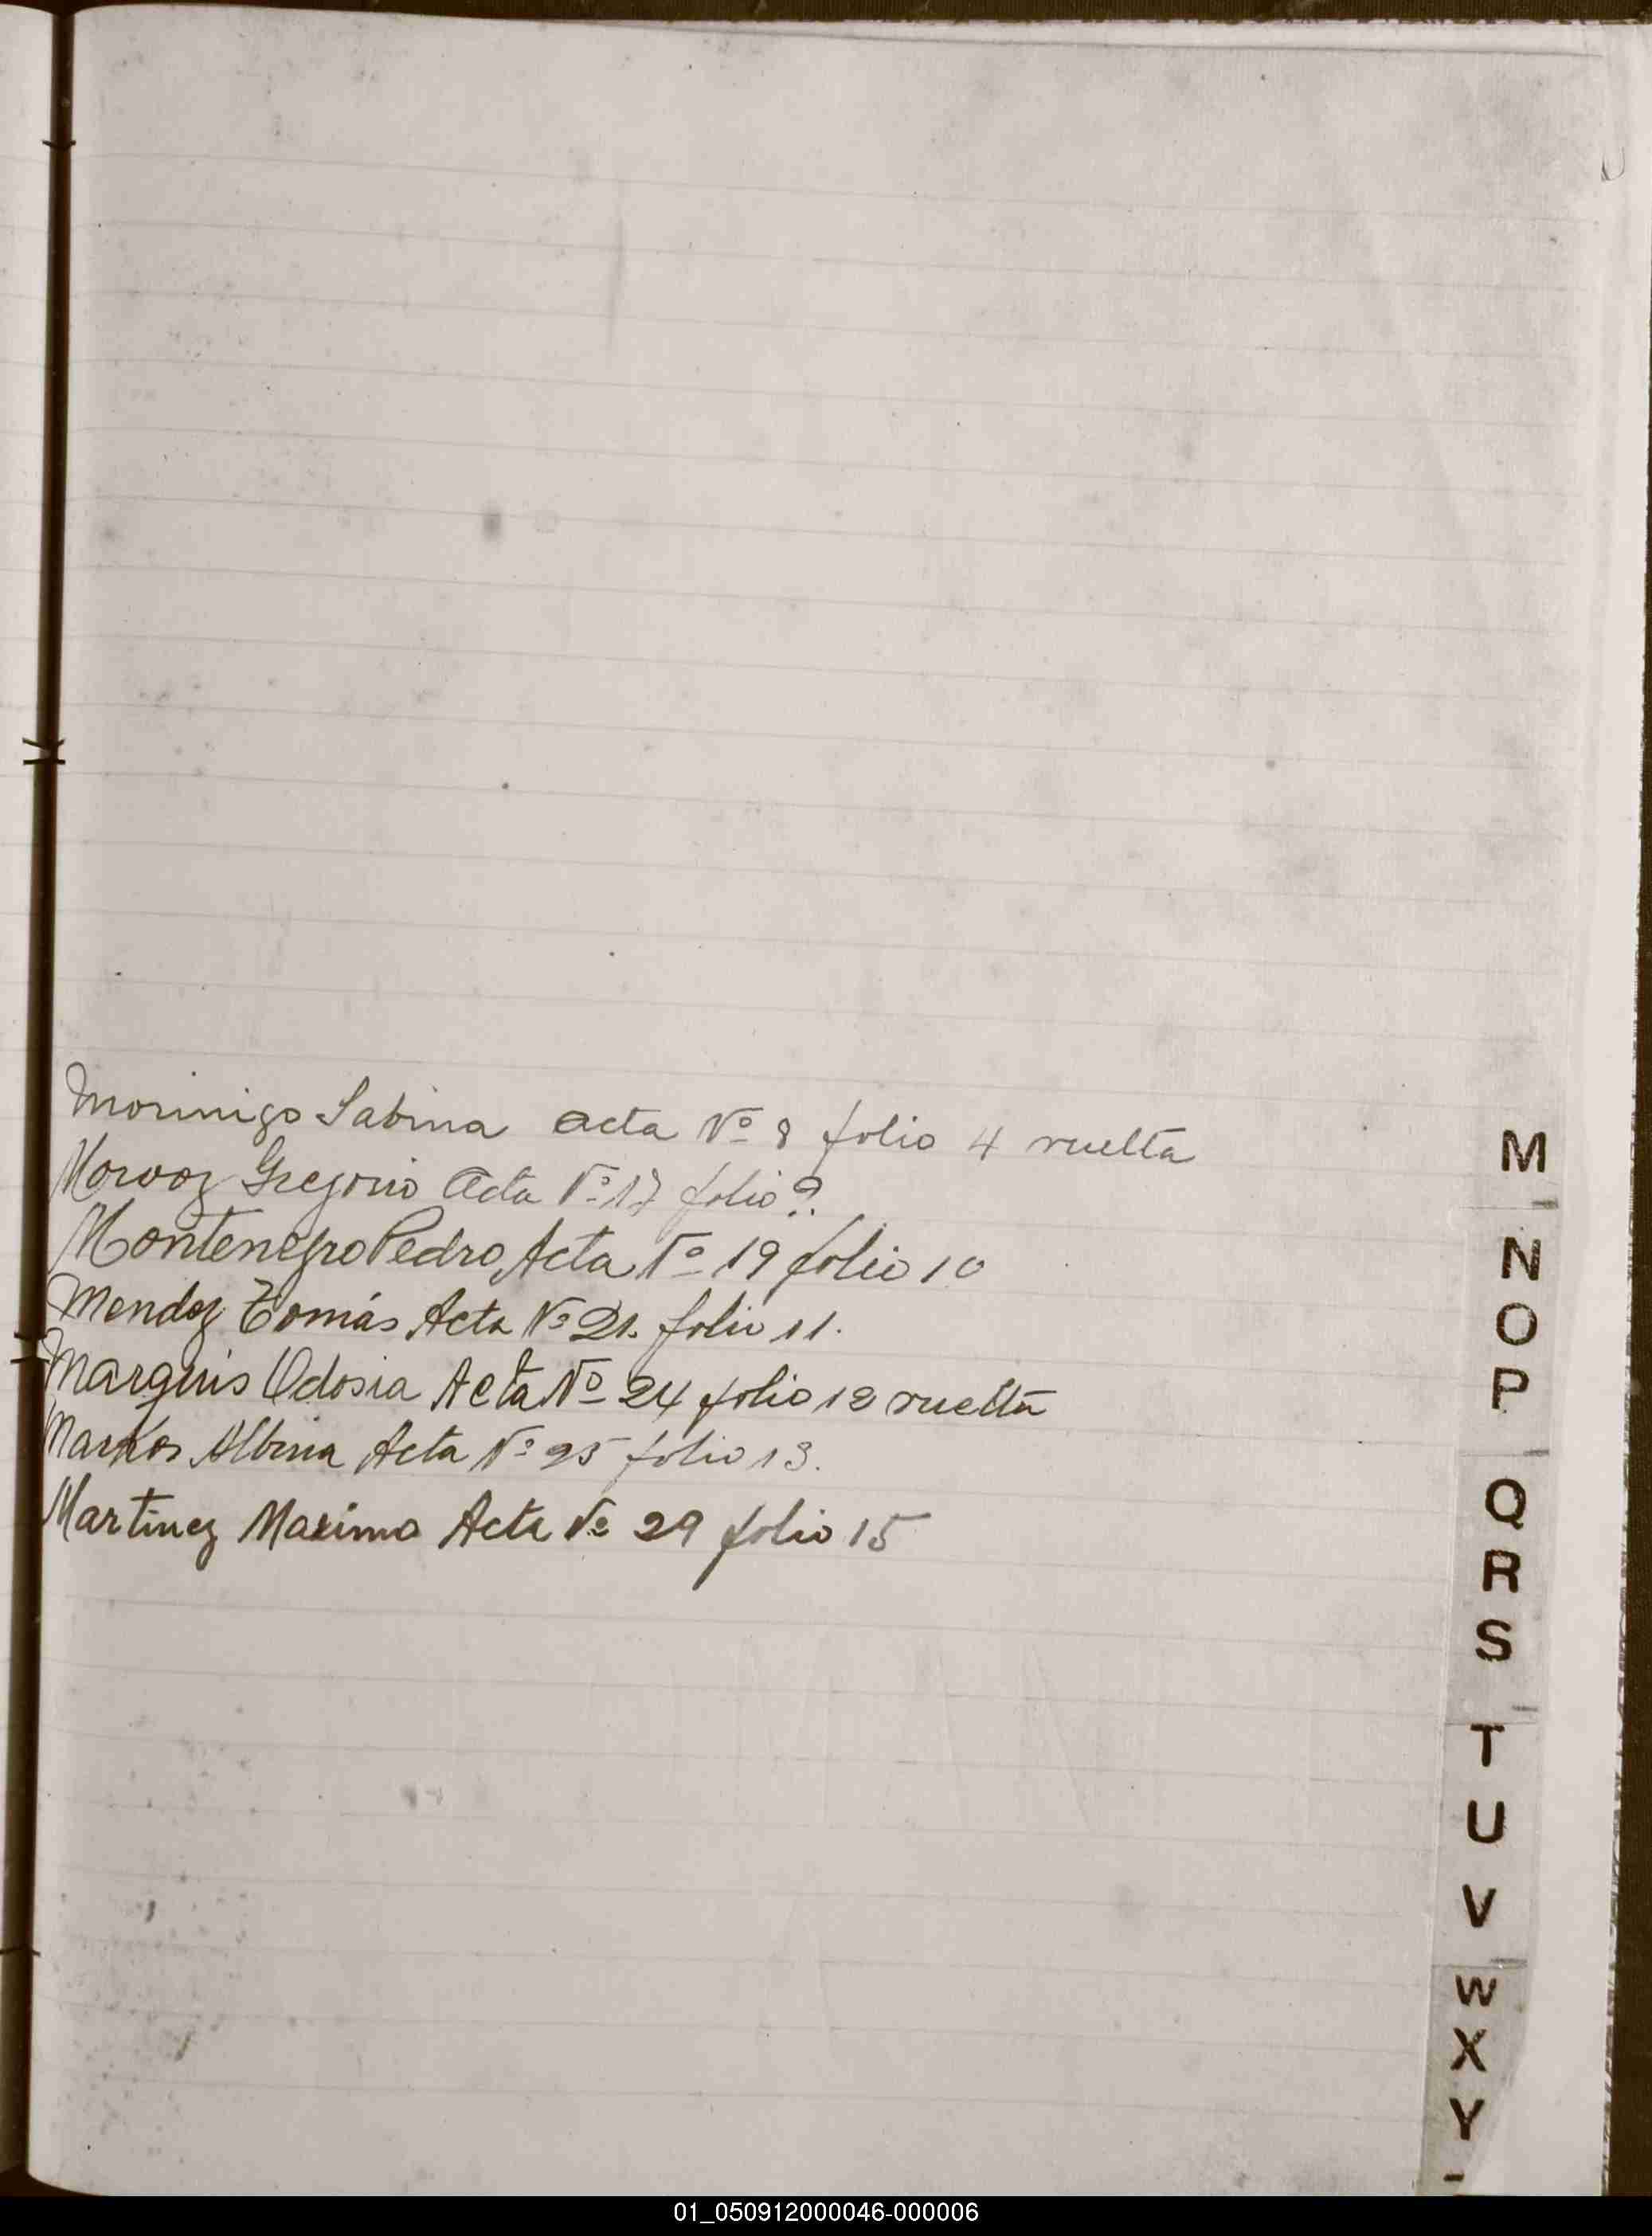 Morinigo Sabina acta Nº 8 folio 4 vuelta
Gregorio Acta Nº 17 folio 9.
Montenegro Pedro Acta Nº 19 folio 10
Mendoz Tomás Acta Nº 21. folio 11.
Marquis Odosia Acta Nº 24 folio 12 vuelta
Markos Albina Acta Nº 25 folio 13.
Martinez Maximo Acta Nº 29 folio 15
M
N
O
P
Q
R
S
T
U
V
W
X
Y
01_050912000046-000006